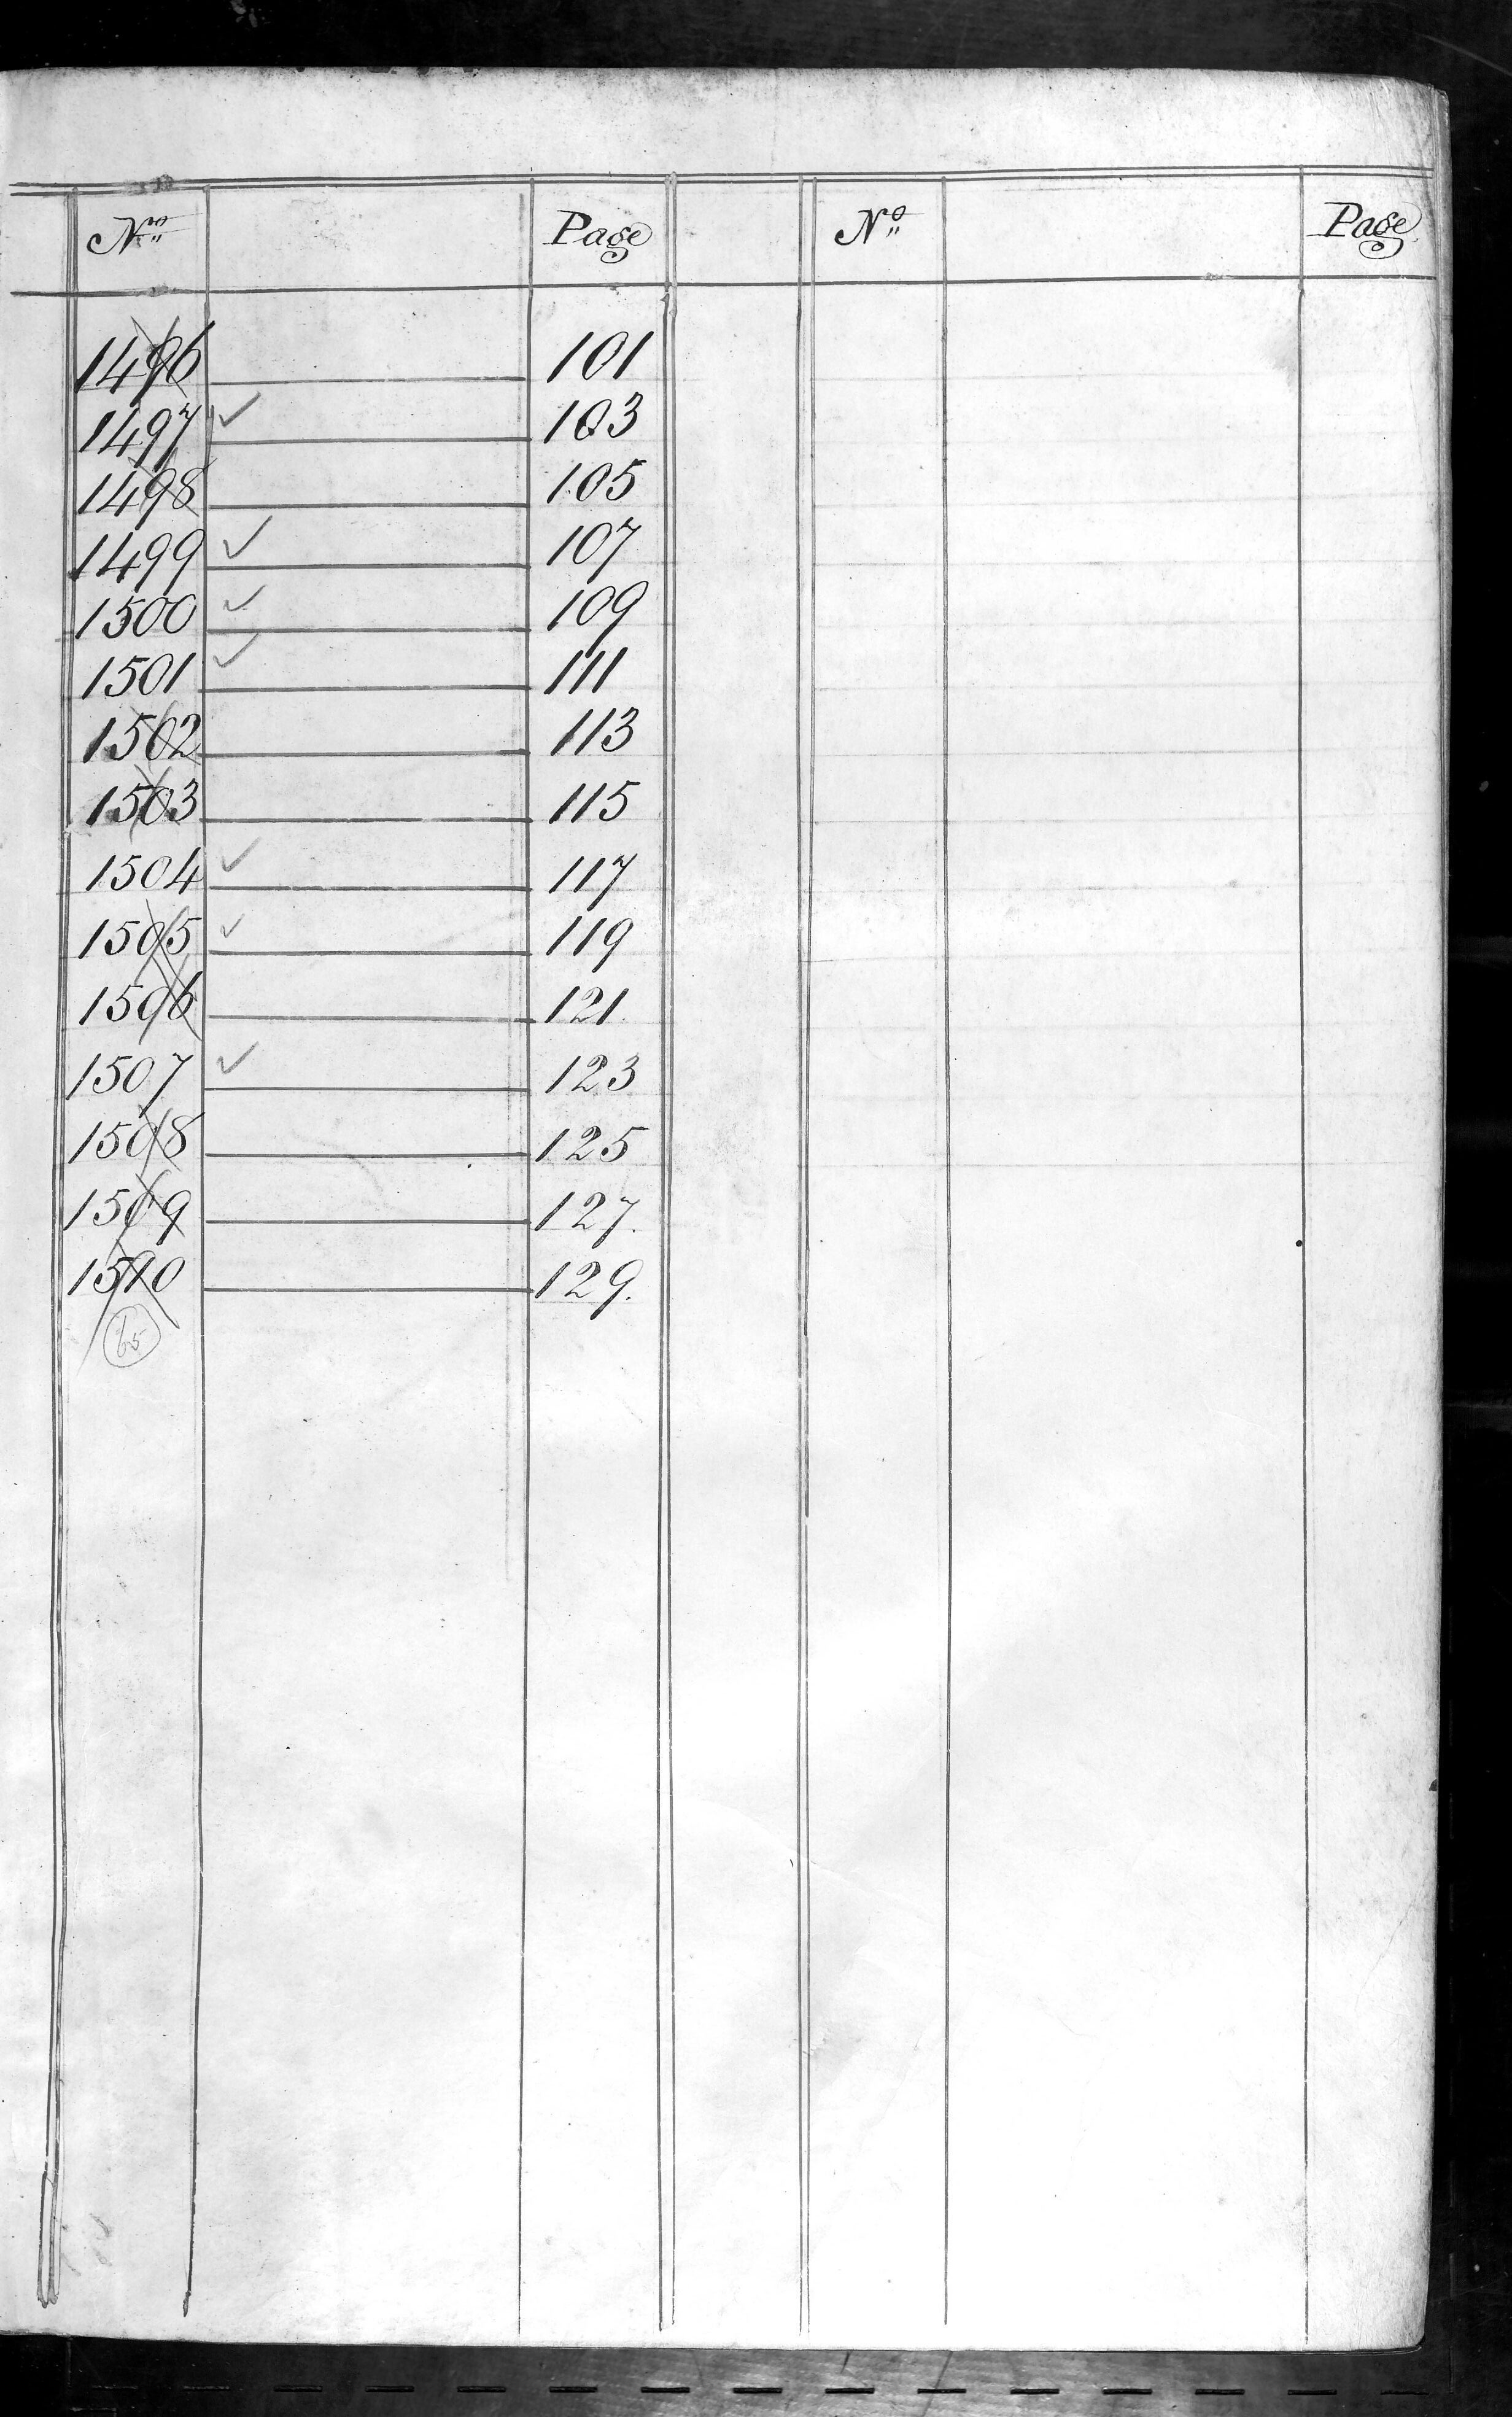 No Page No Page
1496 101
1497 ✓ 103
1498 105
1499 ✓ 107
1500 ✓ 109
1501 ✓ 111
1502 113
1503 115
1504 ✓ 117
1505 ✓ 119
1506 121
1507 ✓ 123
1508 125
1509 127.
1510 129.
65